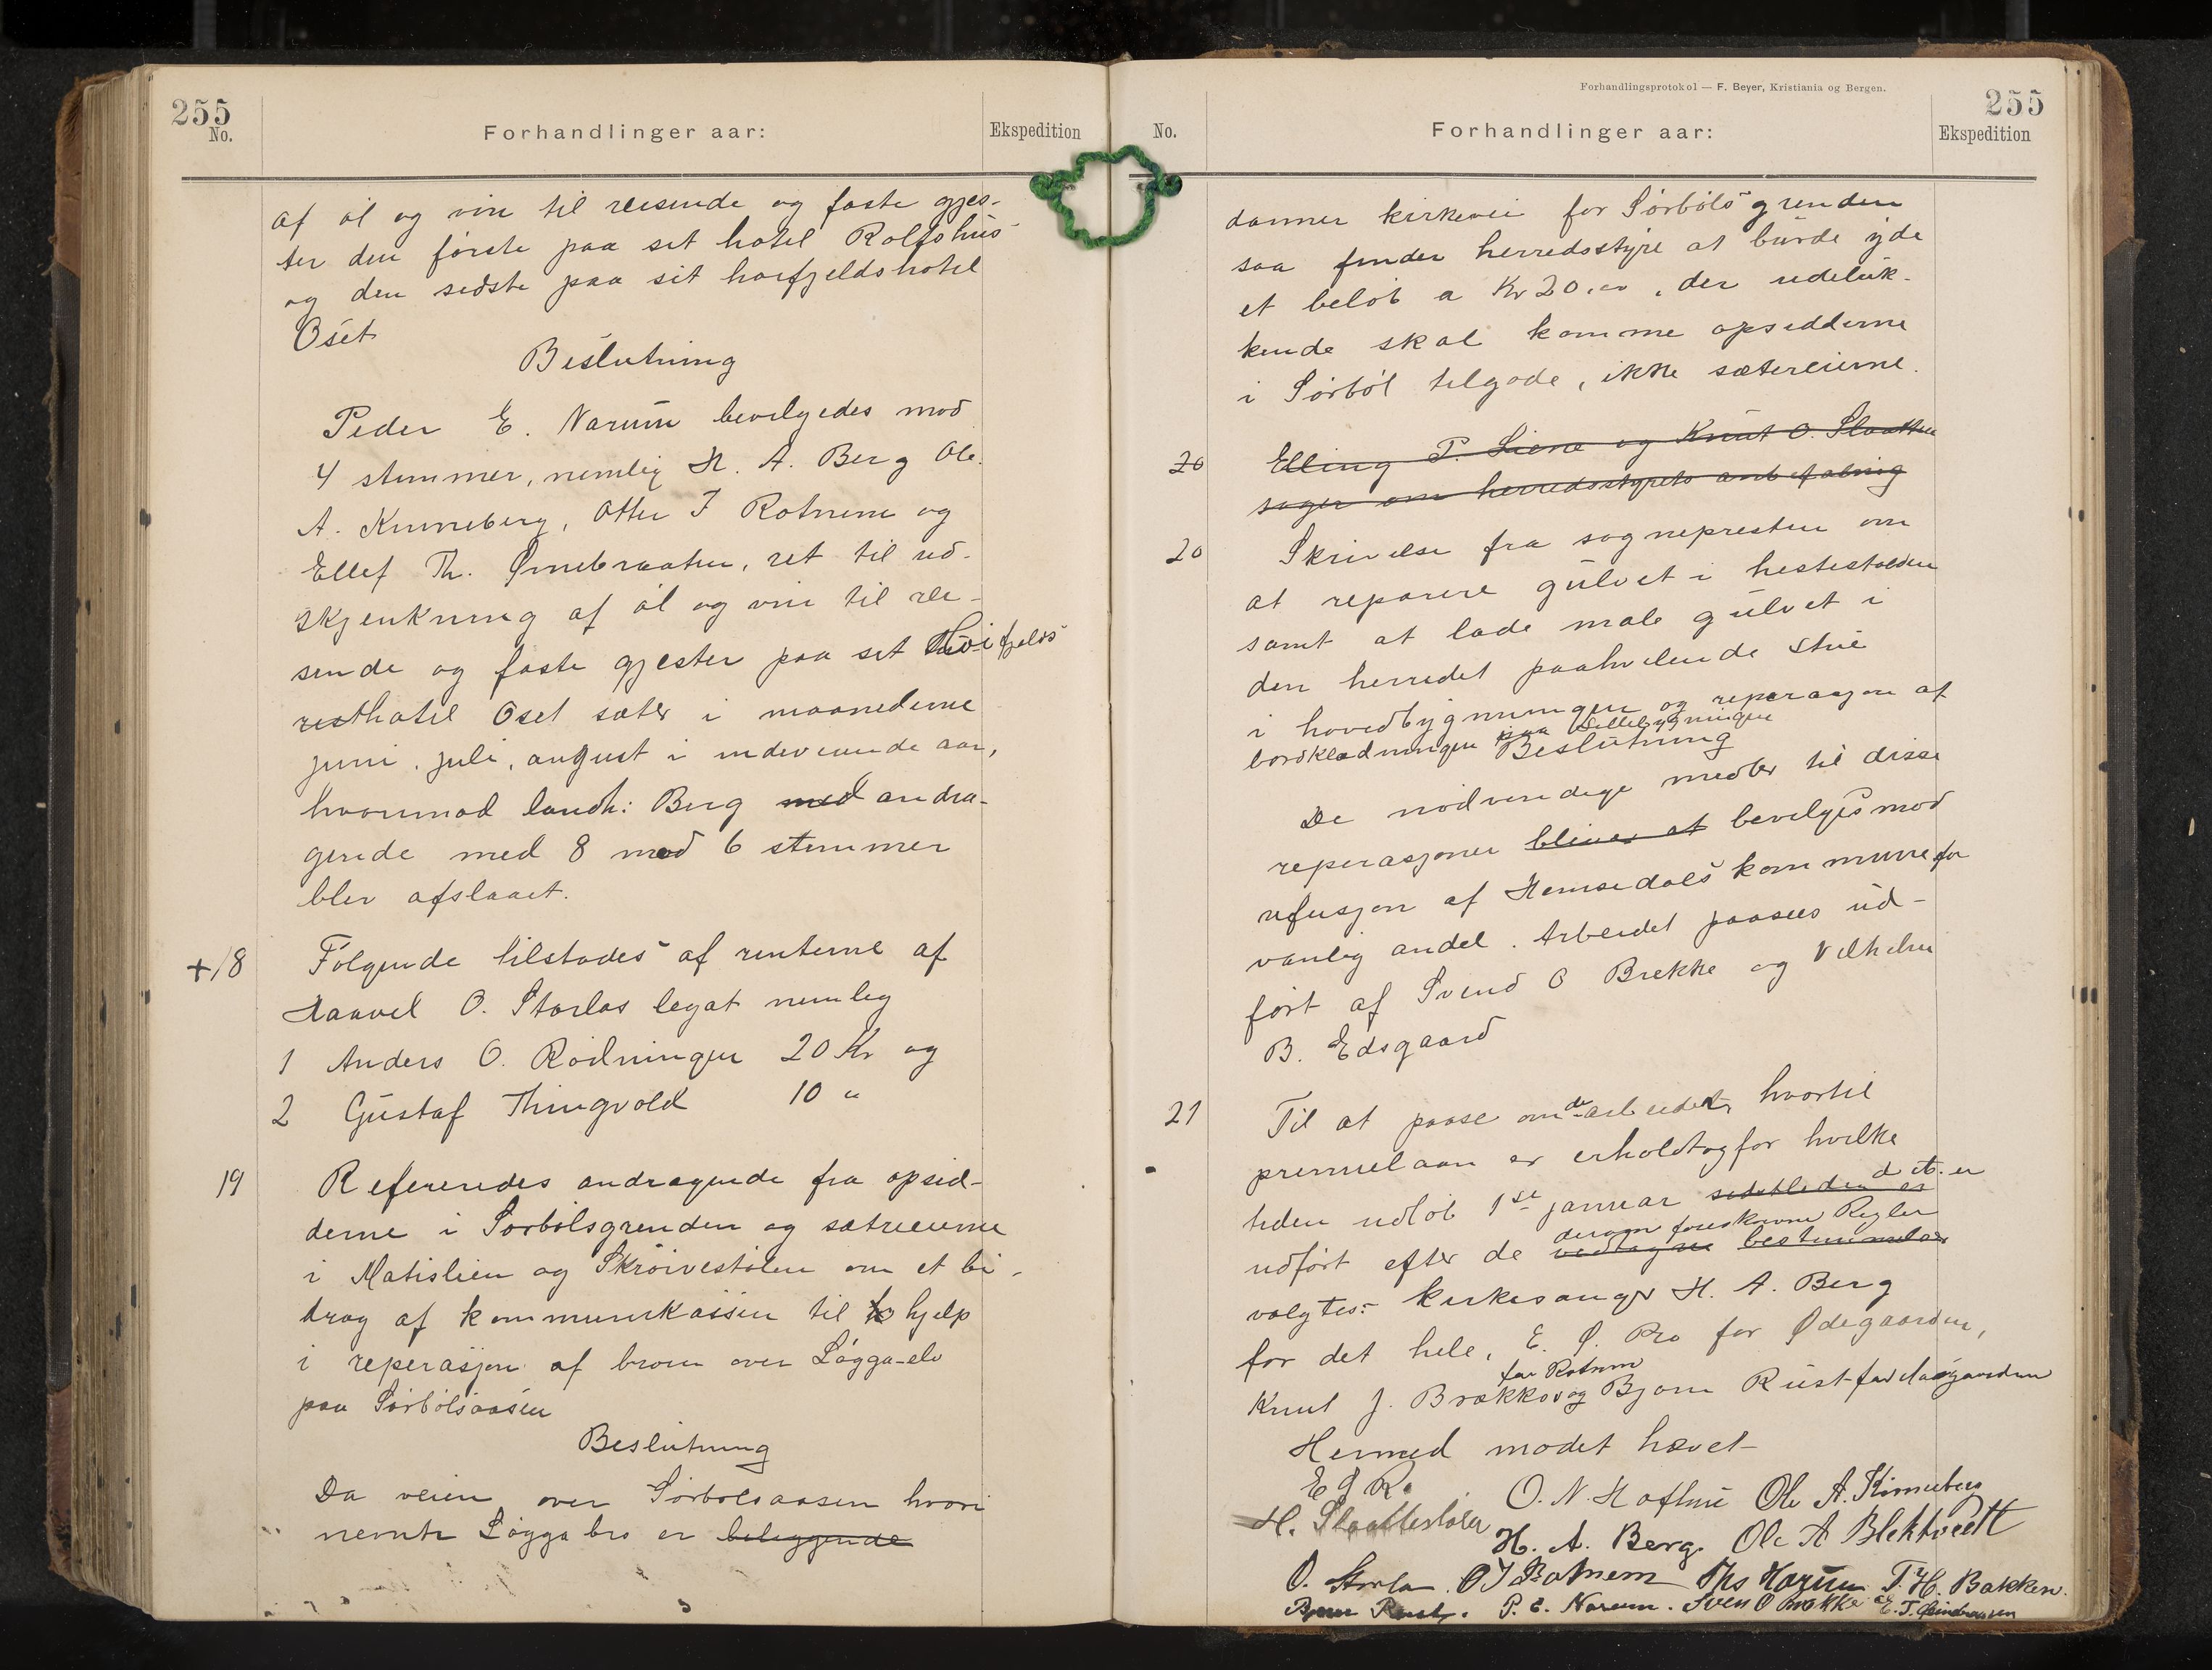 255
No.
Forhandlinger aar:
Ekspedition
af øl og vin til reisende og faste gjes-
ter den første paa sit hotel Rolfshus
og den sidste paa sit høifjeldshotel
Oset
Beslutning
Peder E. Narum bevilgedes mod
4 stemmer, nemlig H. A. Berg Ole
A. Kinneberg, Otter I Rotnem og
Ellef Th. Ørnebraaten, ret til ud-
skjenkning af øl og vin til rei-
sende og faste gjester paa sit Høifjelds
hotel Oset sæter i maanederne
juni, juli, august i indeværende aar,
hvorimod landh: Berg med andra-
gende med 8 mod 6 stemmer
blev afslaaet.
+18
Følgende tilstodes af renterne af
Haavel O. Storlas legat nemleg
1 Anders O. Rødningen 20 Kr og
2 Gustaf Thingvold 10 "
19
Refereredes andragende fra opsid-
derne i Sørbølsgrenden og sætreeierne
i Matislien og Skrøivestølen om et bi-
drag af kommunekassen til hjelp
i reperasjon af broen over Løgga-elv
paa Sørbølsaasen
Beslutning
Da veien over Sørbølsaasen hvori
nevnte Løgga bro er beleggende
Forhandlingsprotokol — F. Beyer, Kristiania og Bergen.
255
No.
Forhandlinger aar:
Ekspedition
danner kirkevei for Sørbølsgrenden
saa finder herredsstyre at burde yde
et beløb a Kr 20,00, der udeluk-
kende skal komme opsidderne
i Sørbøl tilgode, ikke sætereierne.
20
Elling P. Liene og Knut O. Slaatten
søger om herredsstyrets anbefaling
20
Skrivelse fra sognepresten om
at reparere gulvet i hestestalden
samt at lade male gulvet i
den herredet paahvilende stue
i hovedbygningen og reperasjon af
bordklædningen paa Lillebygningen
Beslutning
De nødvendige midler til disse
reperasjoner bliver at bevilges mod
refusjon af Hemsedals kommune for
vanlig andel. Arbeidet paasees ud-
ført af Svend O Brekke og Vilhelm
B. Edsgaard
21
Til at paase om de arbeider, hvortil
premielaan er erholdt og for hvilke
tiden udløb 1ste januar sidstleden d. a. er
udført efter de vedtagne bestemmelser
derom foreskrevne Regler
valgtes: kirkesanger H. A. Berg
for det hele, E. Ø. Bro for Ødegaarden,
for Rotnem
Knut J. Brækko og Bjørn Rust for
Hermed mødet hævet
E G R.
O. N. Hofthui Ole A. Kinneberg
H. Slaattestølen
H. A. Berg. Ole A Blektvedt
O. Storla. O I Rotnem Ths Narum T. H. Bakken.
Bjørn Rust. P. E. Narum. Sven O Brøkke